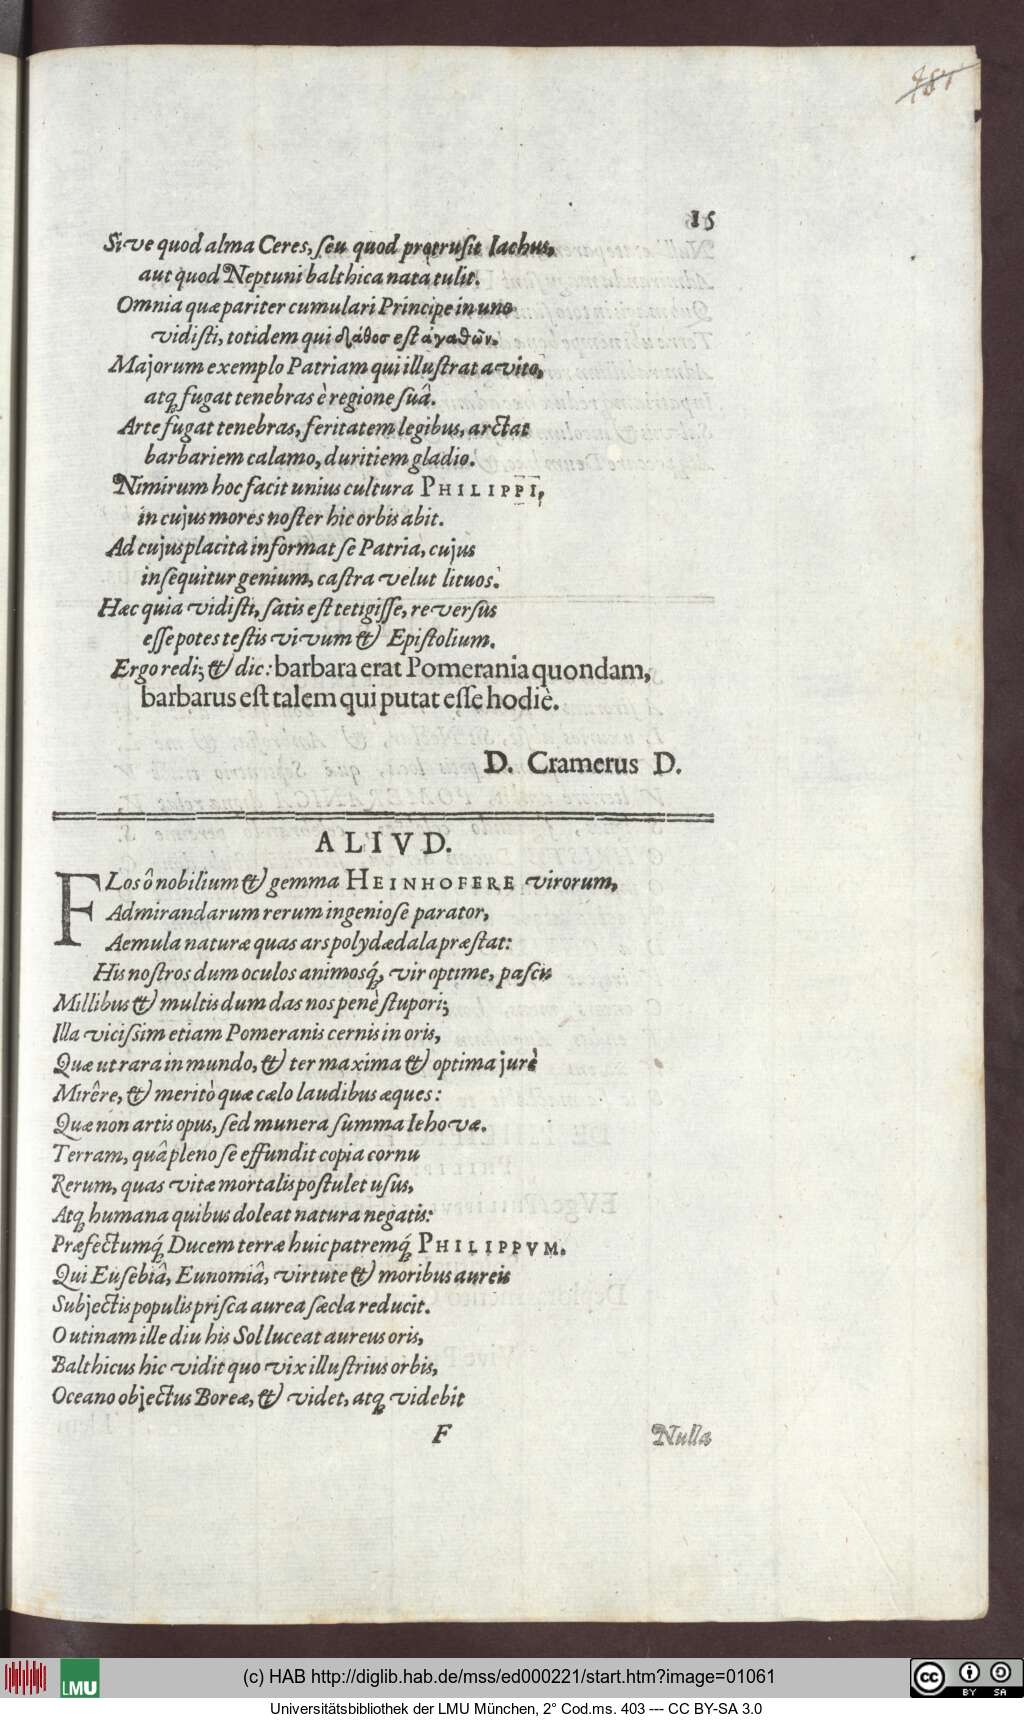 481
15
Sive quod alma Ceres, seu quod protrusit Iachus,
aut quod Neptuni balthica nata tulit.
Omnia quæ pariter cumulari Principe in uno
vidisti, totidem qui ἀγαθῶν.
Majorum exemplo Patriam qui illustrat avito,
atq́ fugat tenebras è regione suâ.
Arte fugat tenebras, feritatem legibus, arctat
barbariem calamo, duritiem gladio.
Nimirum hoc facit unius cultura PHILIPPI,
in cujus mores noster hic orbis abit.
Ad cujus placita informat se Patria, cujus
insequitur genium, castra velut lituos.
Hæc quia vidisti, satis est tetigisse, reversus
esse potes testis vivum & Epistolium.
Ergo redi; & dic: barbara erat Pomerania quondam,
barbarus est talem qui putat esse hodiè.
D. Cramerus D.
ALIVD.
FLos ô nobilium & gemma HEINHOFERE virorum,
Admirandarum rerum ingeniose parator,
Aemula naturæ quas ars polydædala præstat:
His nostros dum oculos animosq́, vir optime, pascis
Millibus & multis dum das nos penè stupori;
Illa vicissim etiam Pomeranis cernis in oris,
Quæ ut rara in mundo, & ter maxima & optima jurè
Mirêre, & meritò quæ cælo laudibus æques:
Quæ non artis opus, sed munera summa Iehovæ.
Terram, quâ pleno se effundit copia cornu
Rerum, quas vitæ mortalis postulet usus,
Atq́ humana quibus doleat natura negatis:
Præfectumq́ Ducem terræ huic patremq́ PHILIPPVM.
Qui Eusebiâ, Eunomiâ, virtute & moribus aureis
Subjectis populis prisca aurea sæcla reducit.
O utinam ille diu his Sol luceat aureus oris,
Balthicus hic vidit quo vix illustrius orbis,
Oceano objectus Boreæ, & videt, atq́ videbit
F Nulla
(c) HAB http://diglib.hab.de/mss/ed000221/start.htm?image=01061
LMU
cc BY SA
Universitätsbibliothek der LMU München, 2° Cod.ms. 403 --- CC BY-SA 3.0